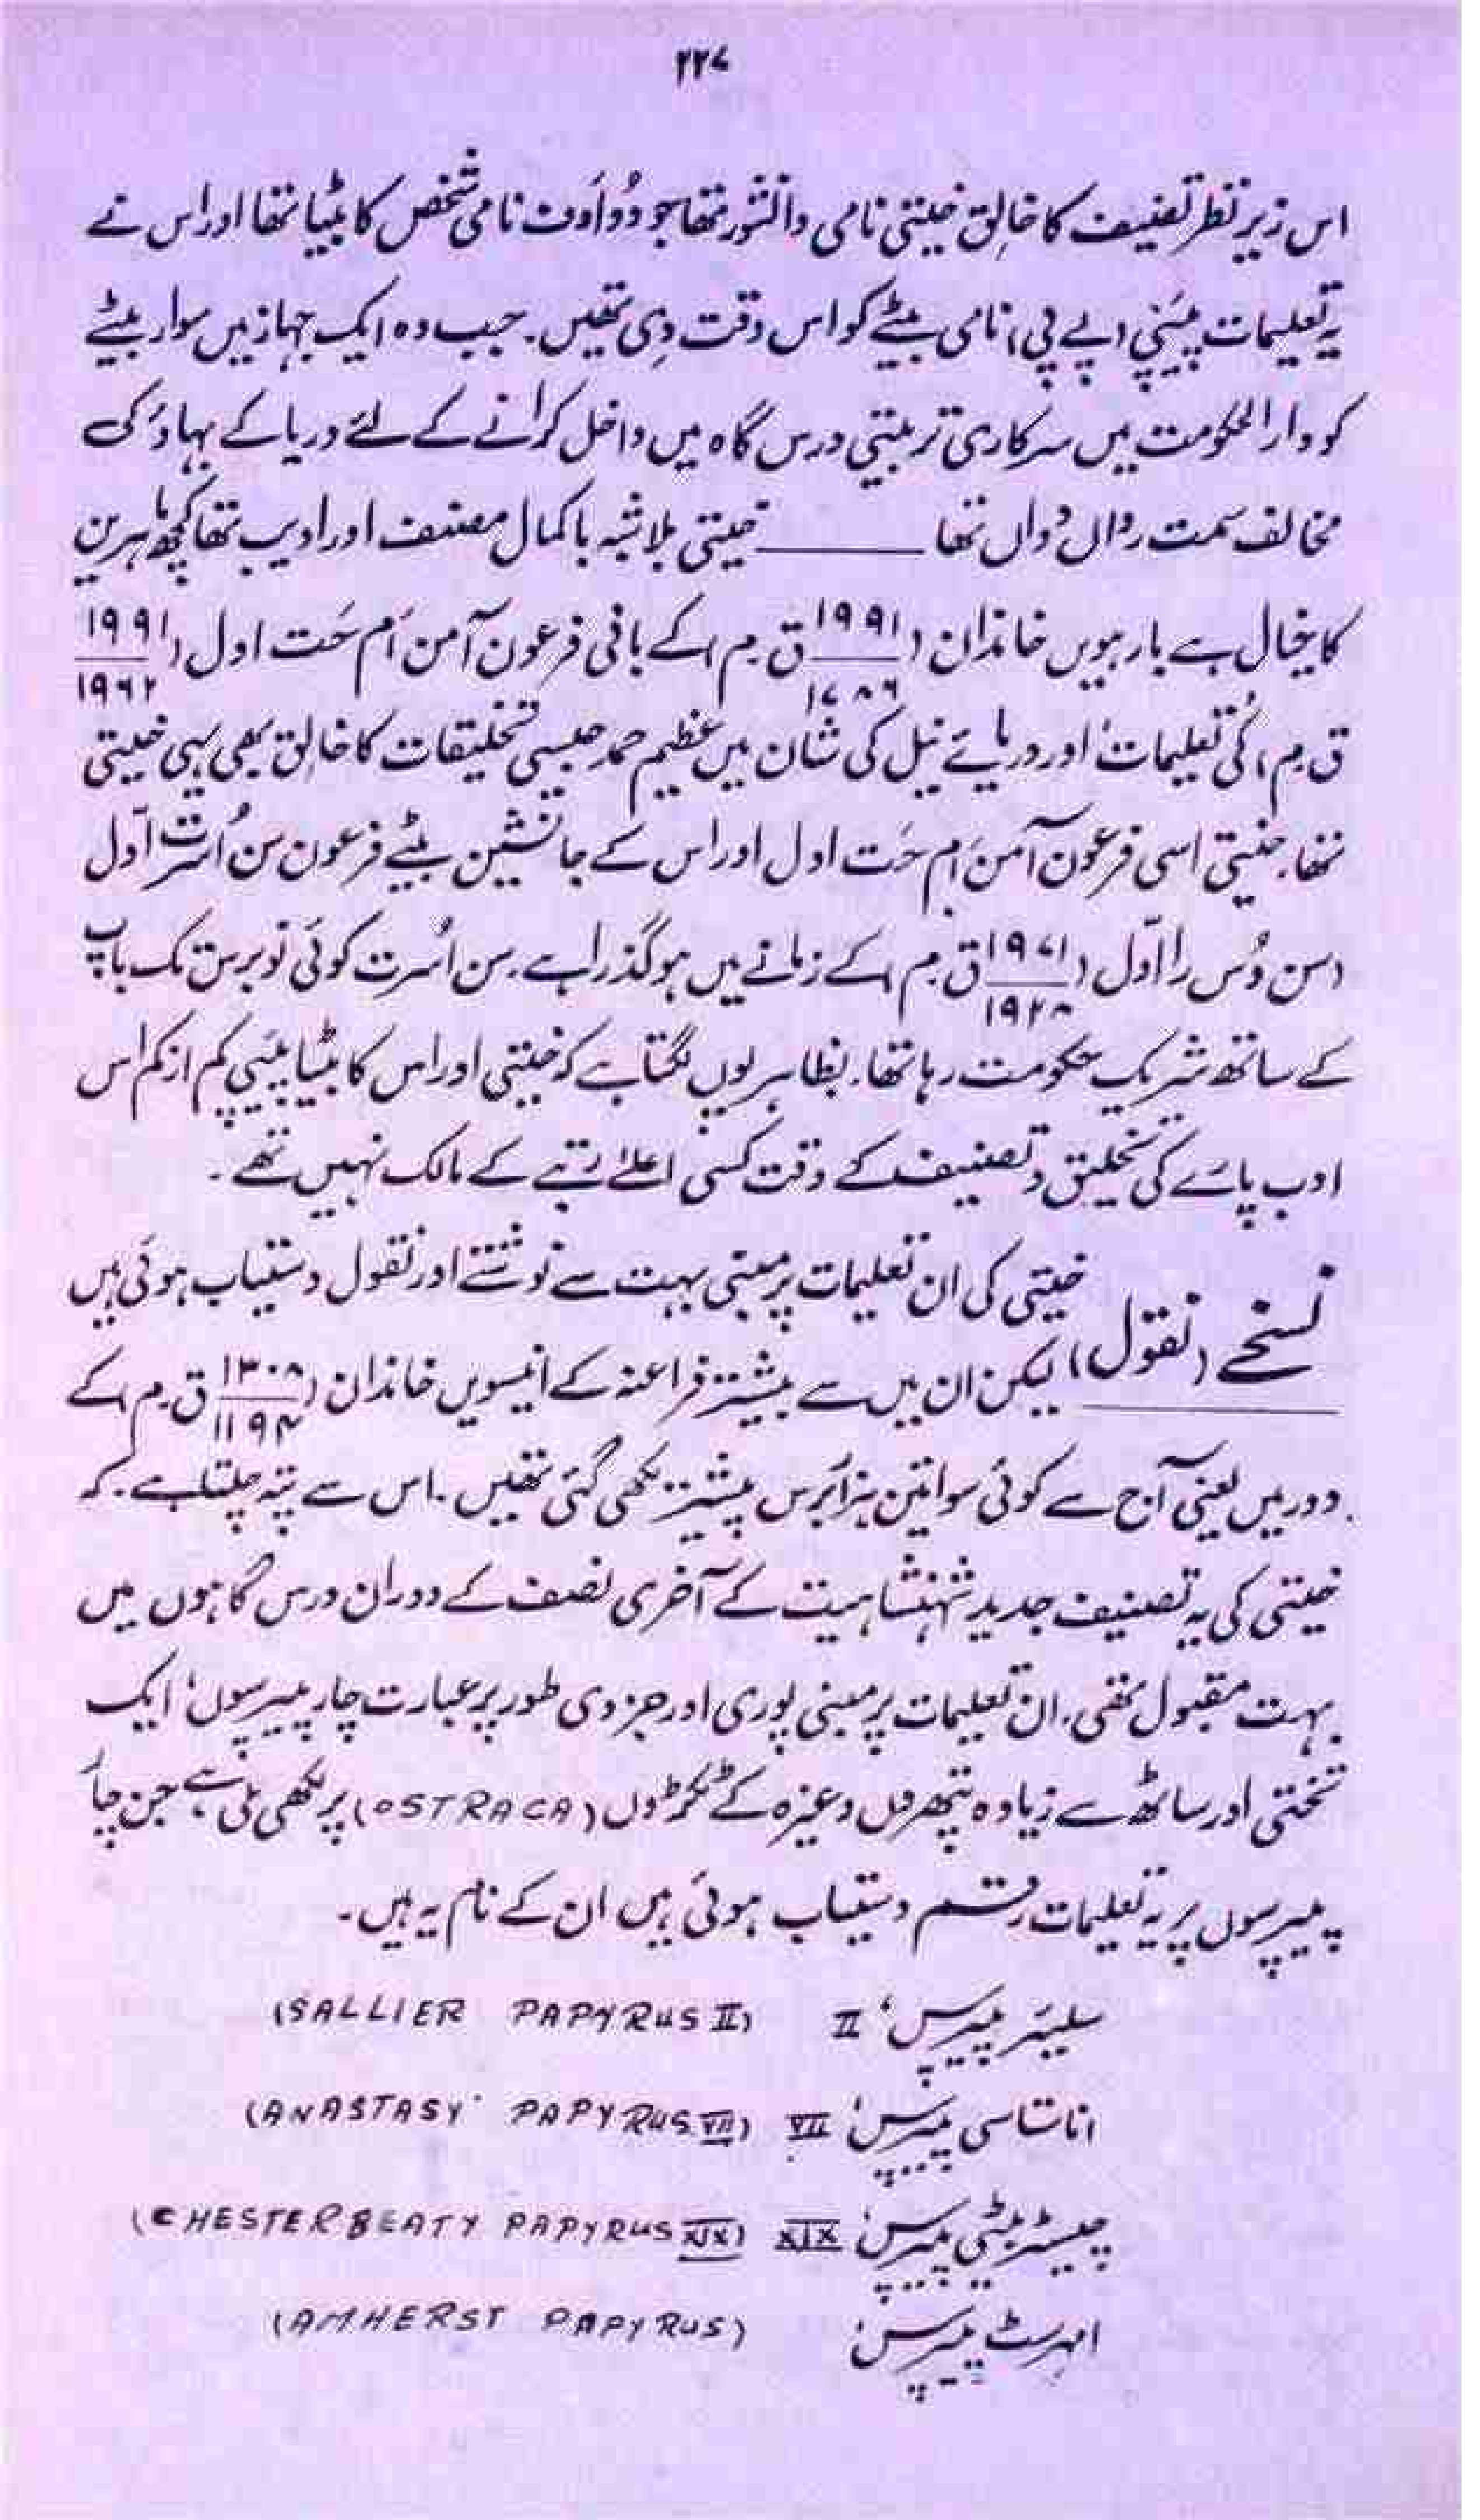 ۲۲۷
اس زیر نظر تصنیف کا خالق خیتی نامی دانشور تھا جو دُواَوف نامی شخص کا بیٹا تھا اور اس نے
یہ تعلیمات پیَپی (پے پی) نامی بیٹے کو اس وقت دی تھیں۔ جب وہ ایک جہاز میں سوار بیٹے
کو دارالحکومت میں سرکاری تربیتی درس گاہ میں داخل کرانے کے لئے دریا کے بہاؤ کی
مخالف سمت رواں دواں تھا ______ خیتی بلاشبہ باکمال مصنف اور ادیب تھا کچھ ماہرین
کا خیال ہے بارہویں خاندان (۱۹۹۱/۱۷۸۶ ق۔م) کے بانی فرعون آمن اَم حَت اول (۱۹۹۱/۱۹۶۲
ق۔م) کی تعلیمات' اور دریائے نیل کی شان میں عظیم حمد جیسی تخلیقات کا خالق بھی یہی خیتی
تھا۔ خیتی اسی فرعون آمن اَم حَت اول اور اس کے جانشین بیٹے فرعون سن اُسرت اوّل
(سن وُس را اوّل (۱۹۷۱/۱۹۲۸ ق۔م) کے زمانے میں ہو گذرا ہے۔ سن اُسرت کوئی نو برس تک باپ
کے ساتھ شریک حکومت رہا تھا۔ بظاہر یوں لگتا ہے کہ خیتی اور اس کا بیٹا پیَپی کم از کم اس
ادب پارے کی تخلیق و تصنیف کے وقت کسی اعلےٰ رتبے کے مالک نہیں تھے۔
نسخے (نقول) خیتی کی ان تعلیمات پر مبنی بہت سے نوشتے اور نقول دستیاب ہوئی ہیں
لیکن ان میں سے بیشتر فراعنہ کے انیسویں خاندان (۱۳۰۸/۱۱۹۴ ق۔م) کے
دور میں یعنی آج سے کوئی سوا تین ہزار برس پیشتر لکھی گئی تھیں۔ اس سے پتہ چلتا ہے۔ کہ
خیتی کی یہ تصنیف جدید شہنشاہیت کے آخری نصف کے دوران درس گاہوں میں
بہت مقبول تھی۔ ان تعلیمات پر مبنی پوری اور جزوی طور پر عبارت چار پیپرسوں' ایک
تختی اور ساٹھ سے زیادہ پتھروں وغیرہ کے ٹکڑوں (OSTRACA) پر لکھی ملی ہے جن چار
پیپرسوں پر یہ تعلیمات رقم دستیاب ہوئی ہیں ان کے نام یہ ہیں۔
سلیئر پیپرس' II (SALLIER PAPYRUS II)
اناستاسی پیپرس' VII (ANASTASY PAPYRUS VII)
چیسٹر بیٹی پیپرس' XIX (CHESTER BEATY PAPYRUS XIX)
امہرسٹ پیپرس' (AMHERST PAPYRUS)